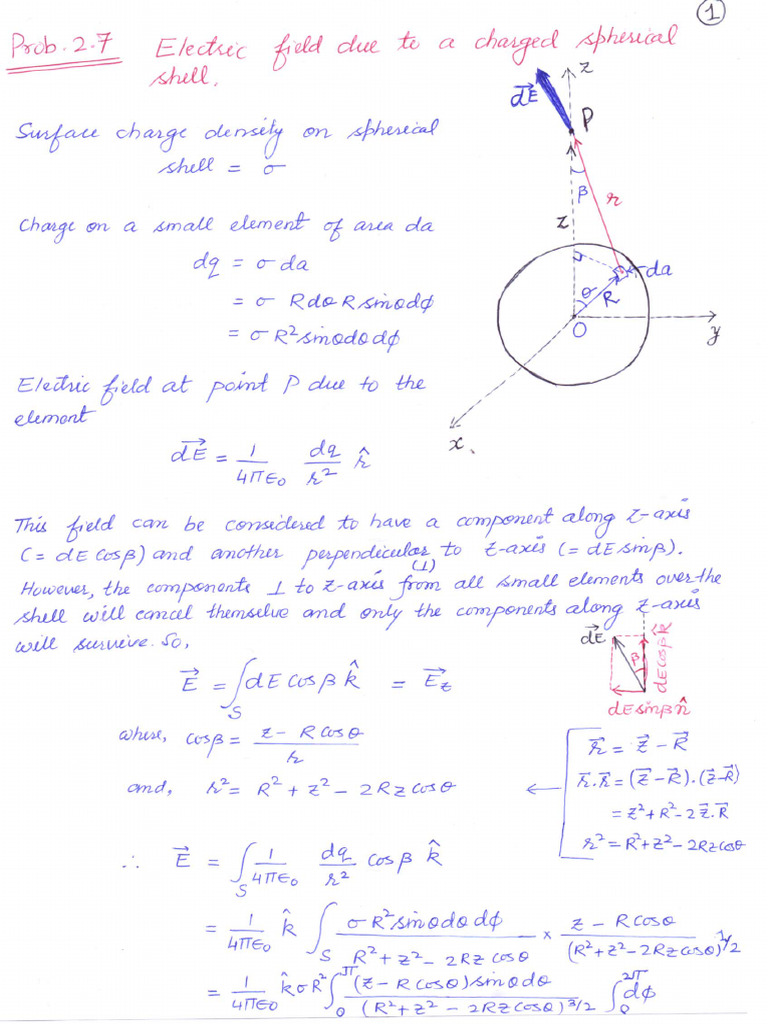 1
Prob. 2.7 Electric field due to a charged spherical
shell.
Surface charge density on spherical
shell = σ
Charge on a small element of area da
dq = σ da
= σ Rdθ R sinθ dϕ
= σ R² sinθ dθ dϕ
Electric field at point P due to the
element
dE⃗ = 1/4πϵ₀ dq/r² r̂
dE⃗
z
P
β
r
z
da
θ
R
O
y
x
This field can be considered to have a component along z-axis
(= dE cosβ) and another perpendicular to z-axis (= dE sinβ).
(⊥)
However, the components ⊥ to z-axis from all small elements over the
shell will cancel themselve and only the components along z-axis
will survive. So,
E⃗ = ∫_S dE cosβ k̂ = E⃗_z
dE⃗
β
dE cosβ k̂
dE sinβ n̂
where, cosβ = (z - R cosθ)/r
and, r² = R² + z² - 2Rz cosθ
r⃗ = z⃗ - R⃗
r⃗.r⃗ = (z⃗ - R⃗).(z⃗ - R⃗)
= z² + R² - 2 z⃗.R⃗
r² = R² + z² - 2Rz cosθ
∴ E⃗ = ∫_S 1/4πϵ₀ dq/r² cosβ k̂
= 1/4πϵ₀ k̂ ∫_S (σ R² sinθ dθ dϕ)/(R² + z² - 2Rz cosθ) × (z - R cosθ)/(R² + z² - 2Rz cosθ)^1/2
= 1/4πϵ₀ k̂ σ R² ∫_0^π ((z - R cosθ) sinθ dθ)/(R² + z² - 2Rz cosθ)^3/2 ∫_0^2π dϕ